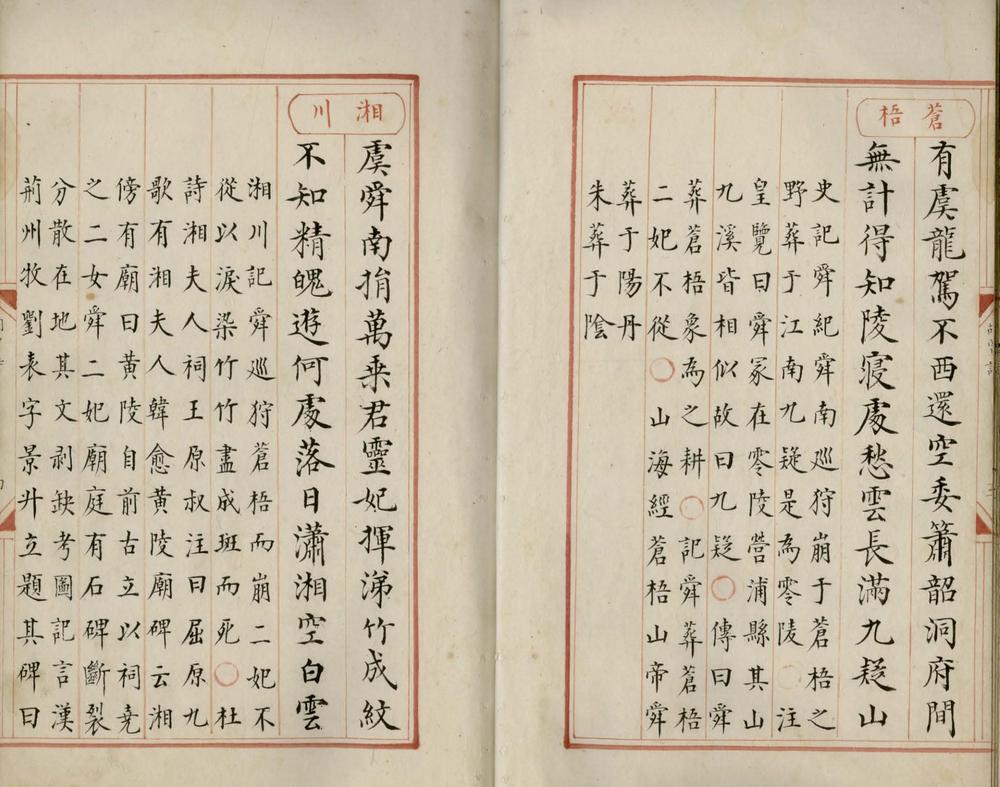 蒼梧
有虞龍駕不西還空委簫韶洞府間
無計得知陵寢處愁雲長滿九疑山
史記舜紀舜南巡狩崩于蒼梧之
野葬于江南九疑是為零陵○注
皇覽曰舜冢在零陵營浦縣其山
九溪皆相似故曰九疑○傳曰舜
葬蒼梧象為之耕○記舜葬蒼梧
二妃不從○山海經蒼梧山帝舜
葬于陽丹
朱葬于陰
湘川
虞舜南捐萬乗君靈妃揮涕竹成紋
不知精魄遊何處落日瀟湘空白雲
湘川記舜巡狩蒼梧而崩二妃不
從以淚染竹竹盡成斑而死○杜
詩湘夫人祠王原叔注曰屈原九
歌有湘夫人韓愈黄陵廟碑云湘
傍有廟曰黄陵自前古立以祠堯
之二女舜二妃廟庭有石碑斷裂
分散在地其文剥缺考圖記言漢
荊州牧劉表字景升立題其碑曰